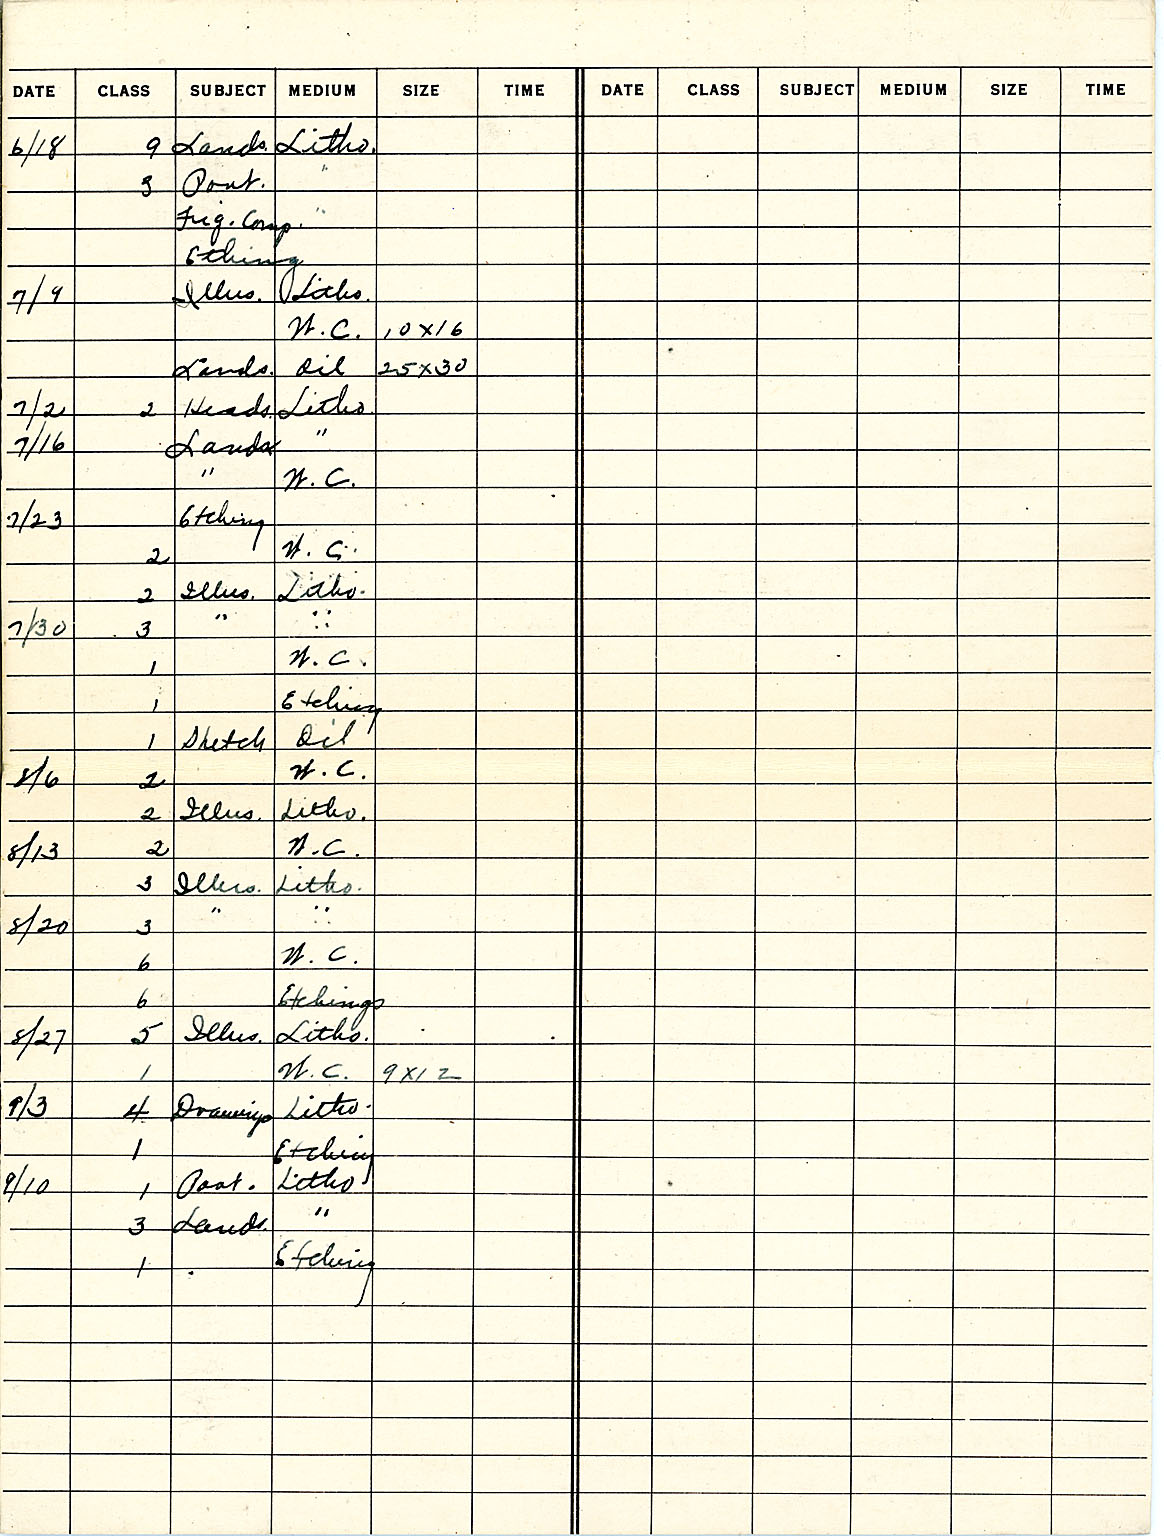 DATE CLASS SUBJECT MEDIUM SIZE TIME DATE CLASS SUBJECT MEDIUM SIZE TIME
6/18 9 Lands. Litho.
3 Port. "
Fig. Comp. "
Etching
7/9 Illus. Litho.
W.C. 10x16
Lands. Oil 25x30
7/2 2 Heads. Litho
7/16 Lands "
" W.C.
7/23 Etching
2 W.C.
2 Illus. Litho.
7/30 3 " "
1 W.C.
1 Etching
1 Sketch Oil
8/6 2 W.C.
2 Illus. Litho.
8/13 2 W.C.
3 Illus. Litho.
8/20 3 " "
6 W.C.
6 Etchings
8/27 5 Illus. Litho.
1 W.C. 9x12
9/3 4 Drawings Litho.
1 Etching
9/10 1 Port. Litho
3 Lands. "
1 Etching